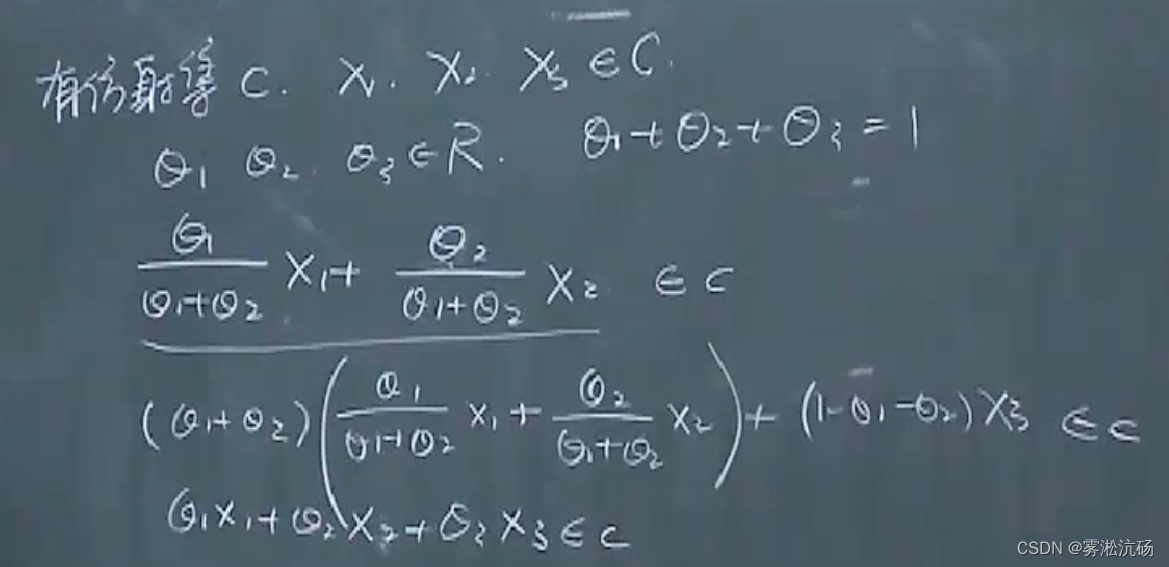 有仿射集 C. X₁. X₂. X₃ ∈ C.
θ₁ θ₂. θ₃ ∈ R. θ₁+θ₂+θ₃ = 1
θ₁/(θ₁+θ₂) X₁ + θ₂/(θ₁+θ₂) X₂ ∈ C
(θ₁+θ₂)(θ₁/(θ₁+θ₂) X₁ + θ₂/(θ₁+θ₂) X₂) + (1-θ₁-θ₂)X₃ ∈ C
θ₁X₁+θ₂X₂+θ₃X₃ ∈ C
CSDN @雾淞沆砀